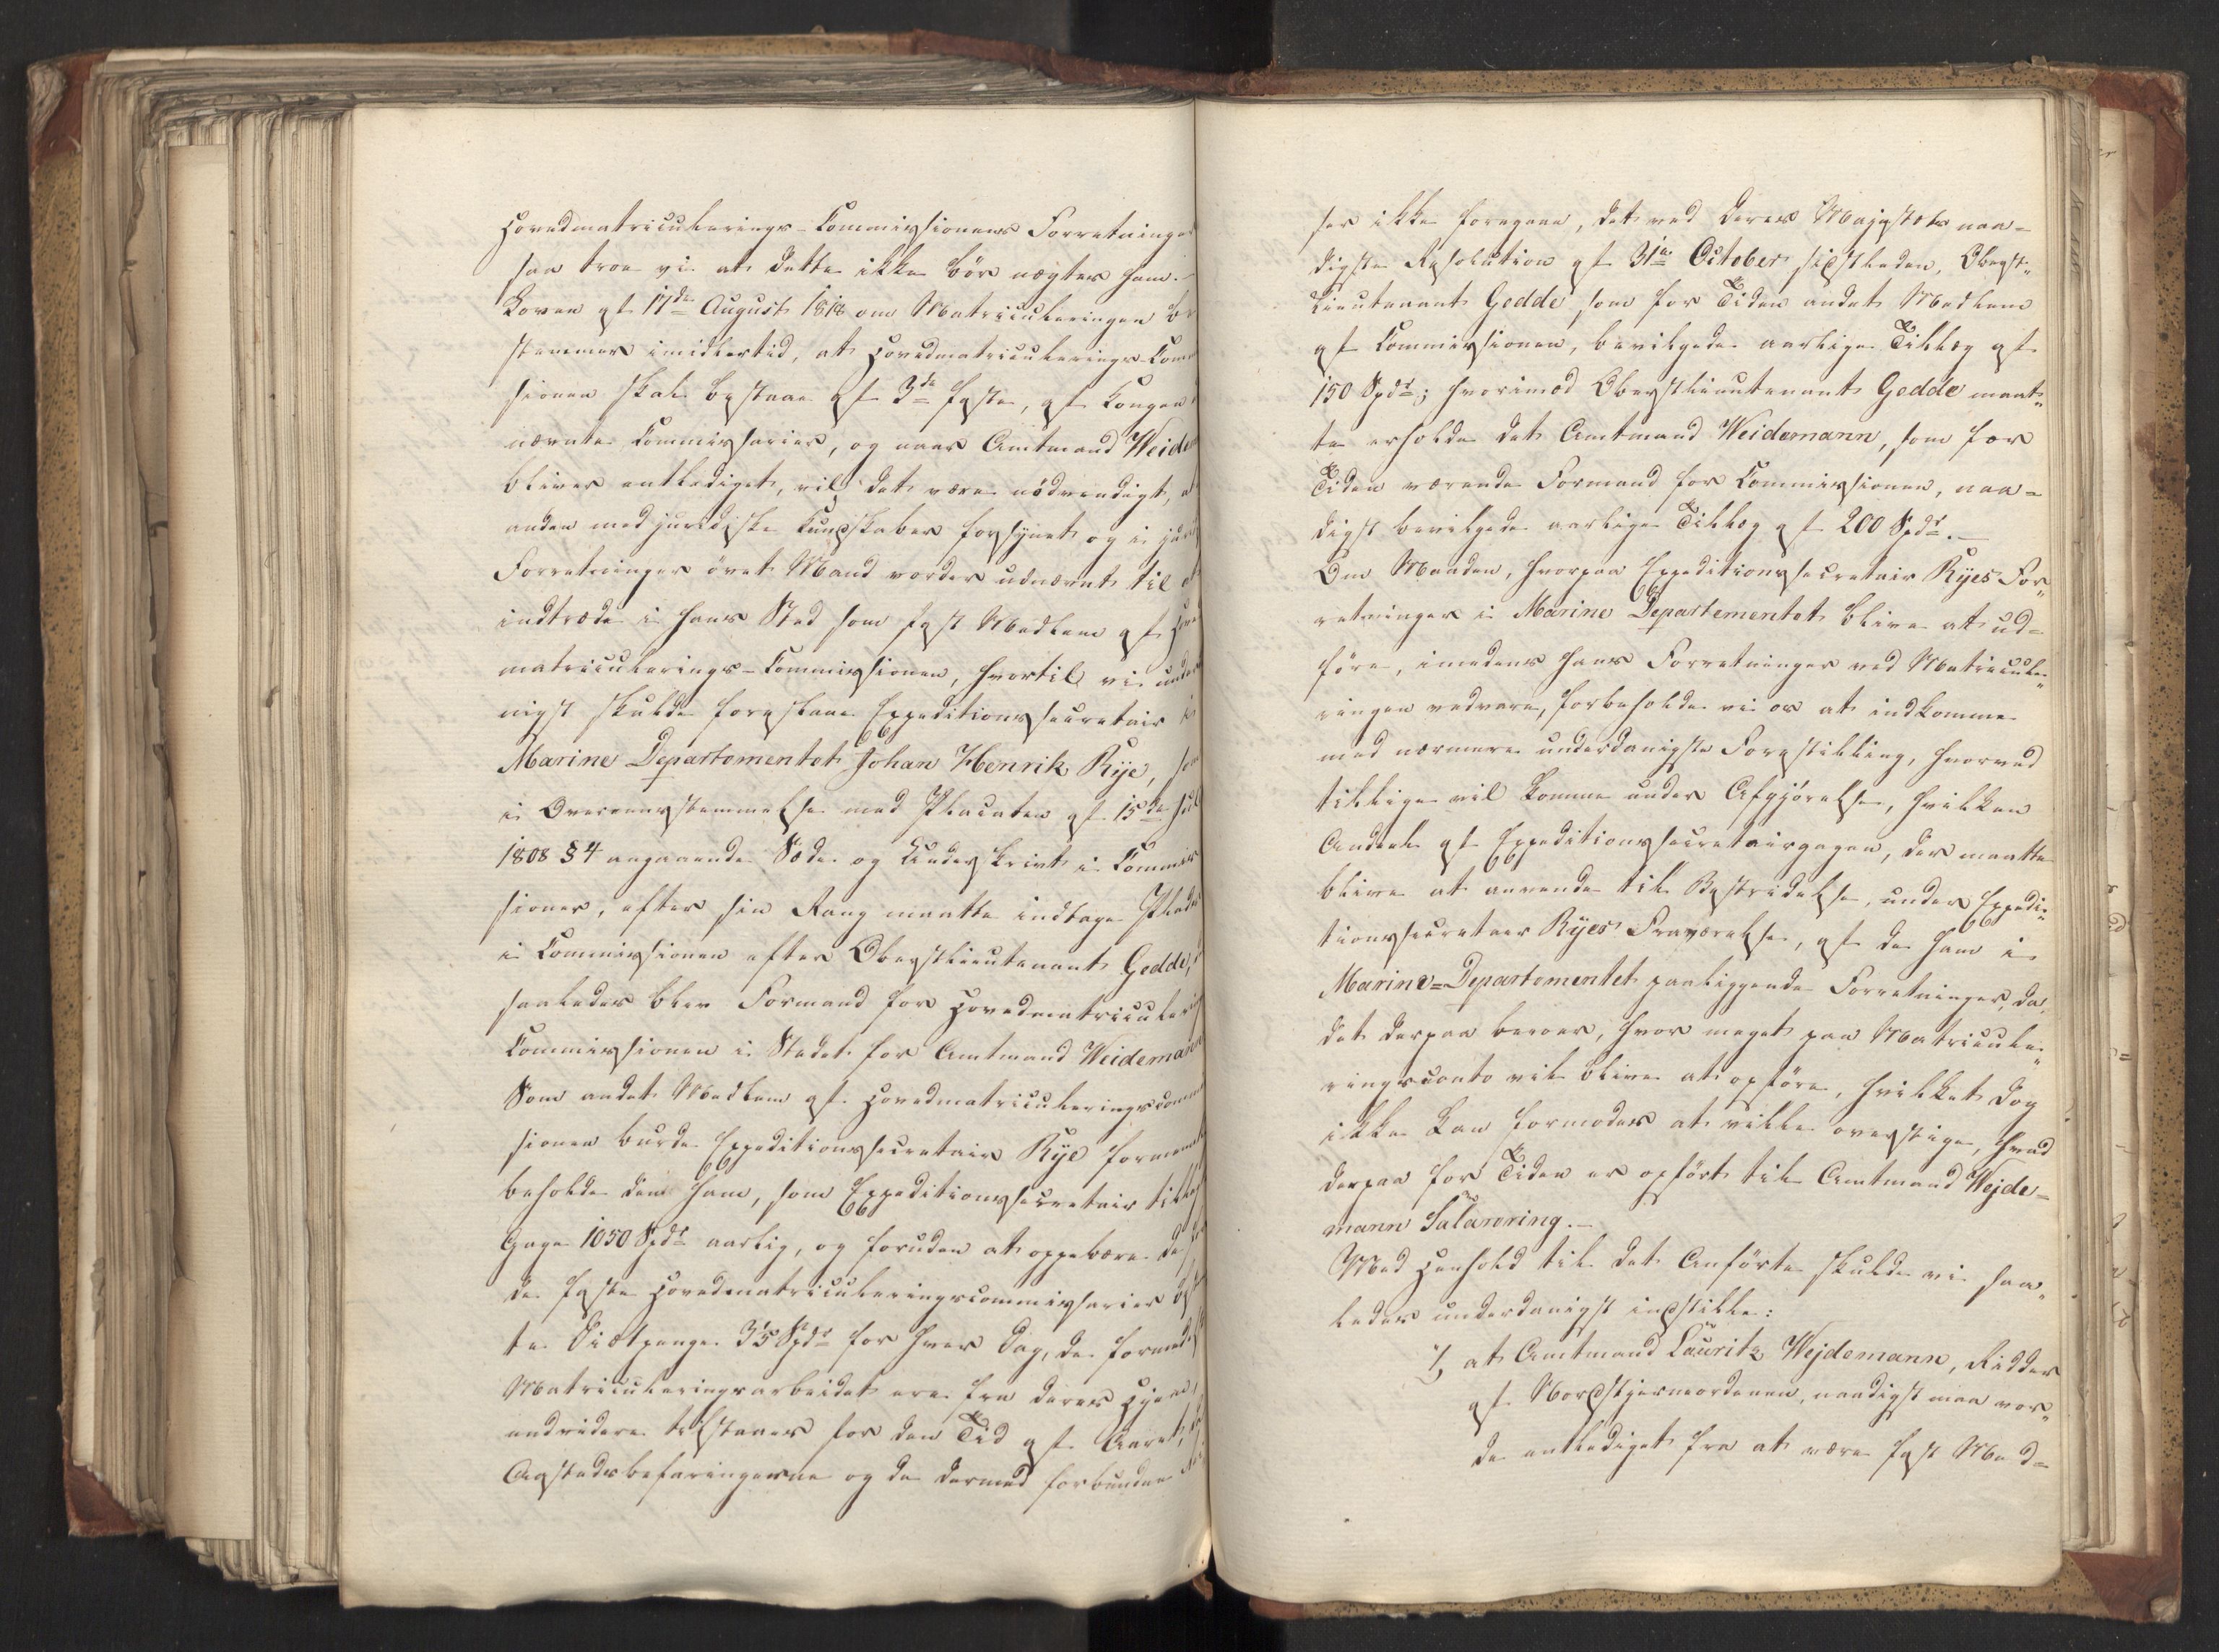 Hovedmatriculerings-Commissionens Forretninger
saa troe vi at dette ikke bör nægtes ham.
Loven af 17de August 1818 om Matriculeringen be
stemmer imidlertid, at Hovedmatriculerings-Comm
sionen skal bestaae af 3de faste, af Kongen
nævnte Commissarier, og naar Amtmand Weidem
bliver entlediget, vil det være nödvendigt, at
anden med juridiske Kundskaber forsynet og i jurid
Forretninger övet Mand vorder udnævnt til at
indtræde i hans Sted som fast Medlem af Hoved
matriculerings-Commissionen, hvortil vi under
nigst skulde foreslaae Expeditionssecretair i
Marine Departementet Johan Henrik Rye, som
i Overeensstemmelse med Placaten af 15de Jul
1808 § 4 angaaende Sæde og Underskrivt i Commis
sioner, efter sin Rang maatte indtage Plads
i Commissionen efter Oberstlieutenant Gedde,
saaledes blev Formand for Hovedmatriculering
Commissionen i Stedet for Amtmand Weidemann
Som andet Medlem af Hovedmatriculeringscomm
sionen burde Expeditionssecretair Rye formeent
beholde den ham, som Expeditionssecretair tillagt
Gage 1050 Spdr aarlig, og foruden at oppebære de
de faste Hovedmatriculeringscommissarier
te Diætpenge 3 1/5 Spdr for hver Dag, de formed
Matriculeringsarbeidet ere fra deres Hjem,
endvidere tilstaaes for den Tid af Aaret,
Aastedsbefaringerne og de dermed forbundne
ser ikke foregaae, det ved Deres Majestæts naa-
digste Resolution af 31te October sidstleden, Oberst-
Lieutenant Gedde, som for Tiden andet Medlem
af Commissionen, bevilgede aarlige Tillæg af
150 Spdr; hvorimod Oberstlieutenant Gedde maat-
te erholde det Amtmand Weidemann, som for
Tiden værende Formand for Commissionen, naa-
digst bevilgede aarlige Tillæg af 200 Spdr.-
Om Maaden, hvorpaa Expeditionssecretair Ryes For-
retninger i Marine Departementet blive at ud-
före, imedens hans Forretninger ved Matricule-
ringen vedvare, forbeholde vi os at indkomme
med nærmere underdanigste Forestilling, hvorved
tillige vil komme under Afgjörelse, hvilken
Andeel af Expeditionssecretairgagen, der maatte
blive at anvende til Bestridelse, under Expedi-
tionssecretair Ryes Fraværelse, af de ham i
Marine-Departementet paaliggende Forretninger, da
det derpaa beroer, hvor meget paa Matricule-
ringsconto vil blive at opföre, hvilket dog
ikke kan formodes at ville overstige, hvad
derpaa for Tiden er opfört til Amtmand Wejde-
mann Salarering.-
Med Henhold til det Anförte skulde vi saa-
ledes underdanigst indstille:
1, at Amtmand Lauritz Wejdemann, Ridder
af Nordstjerneordenen, naadigst maa vor-
de entlediget fra at være fast Med-